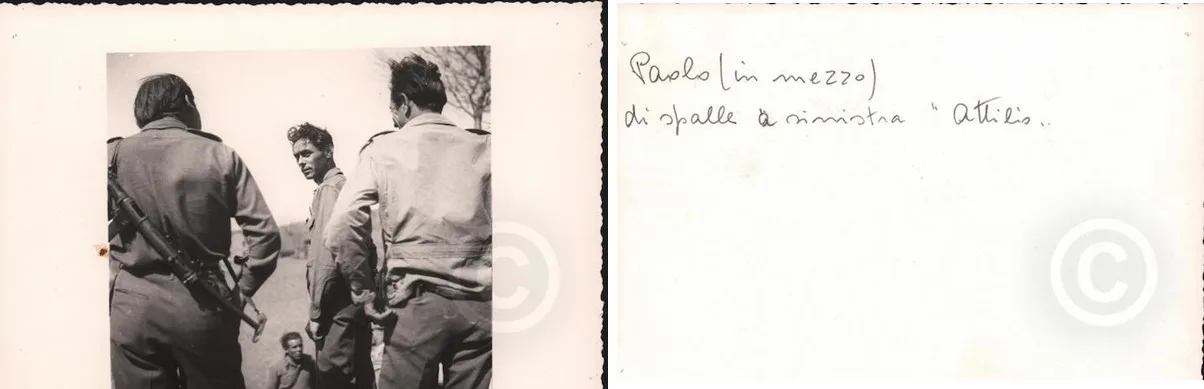 Paolo (in mezzo)
di spalle a sinistra " Attilio..
©
©